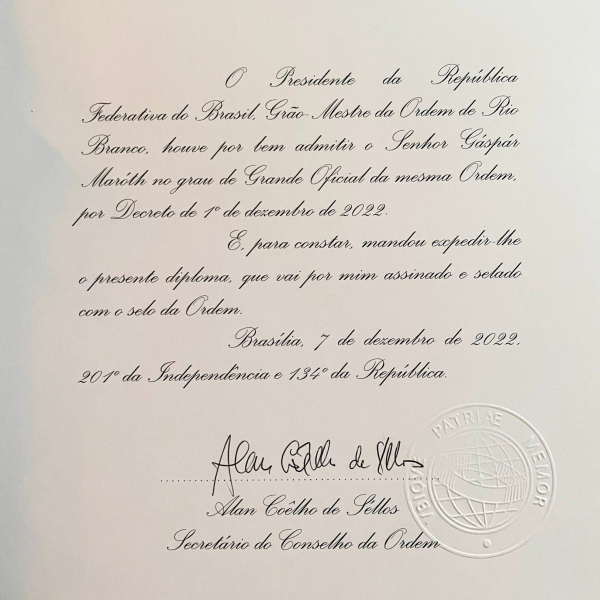 O Presidente da República
Federativa do Brasil, Grão-Mestre da Ordem de Rio
Branco, houve por bem admitir o Senhor Gáspár
Maróth no grau de Grande Oficial da mesma Ordem,
por Decreto de 1º de dezembro de 2022.
E, para constar, mandou expedir-lhe
o presente diploma, que vai por mim assinado e selado
com o selo da Ordem.
Brasília, 7 de dezembro de 2022,
201º da Independência e 134º da República.
Alan Coêlho de Séllos
Alan Coêlho de Séllos
Secretário do Conselho da Ordem
UBIQUE PATRIAE MEMOR